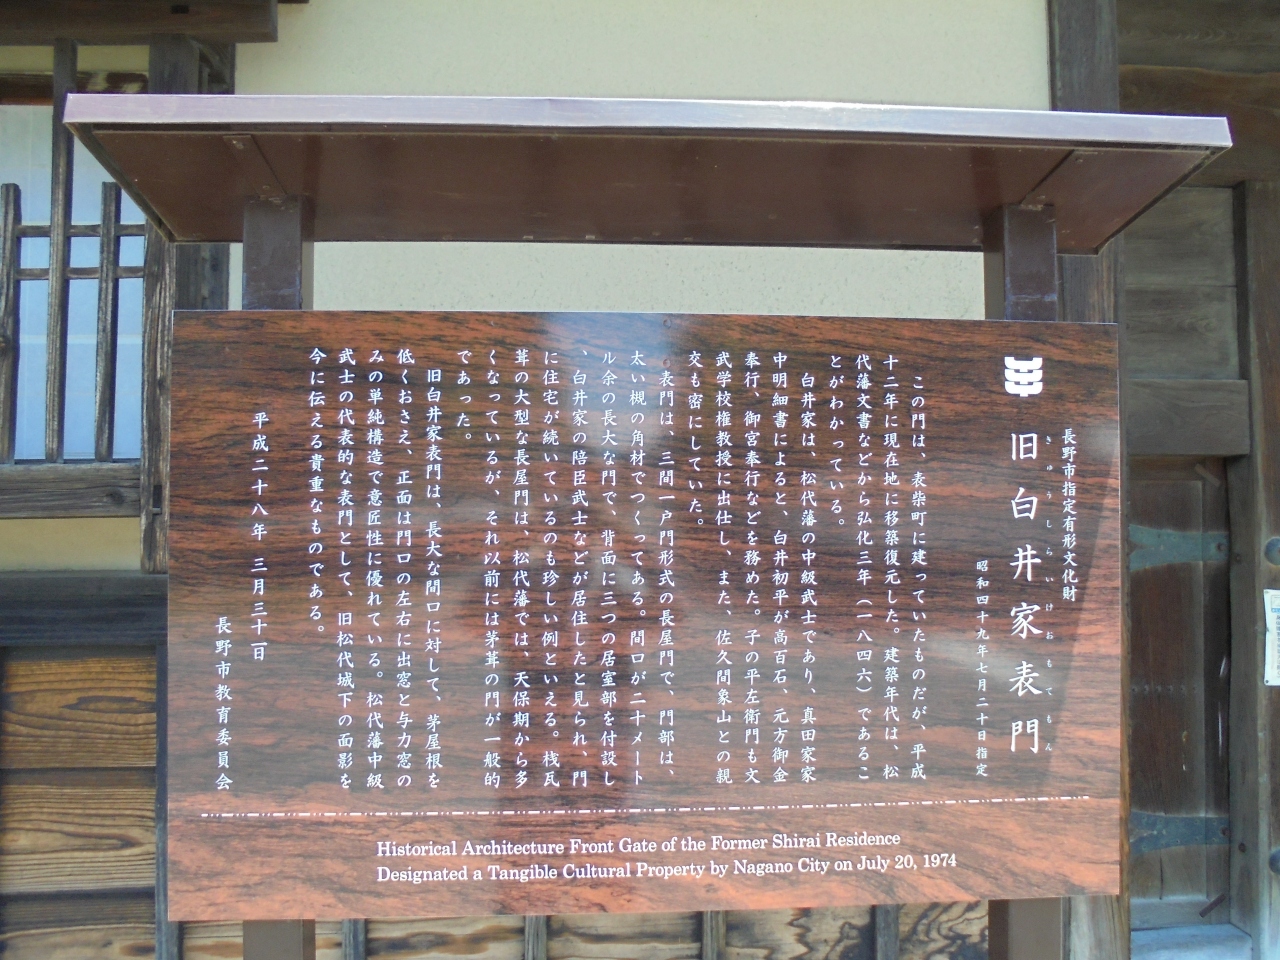 長野市指定有形文化財
きゅうしらいけおもてもん
旧白井家表門
昭和四十九年七月二十日指定
この門は、表柴町に建っていたものだが、平成
十二年に現在地に移築復元した。建築年代は、松
代藩文書などから弘化三年（一八四六）であるこ
とがわかっている。
白井家は、松代藩の中級武士であり、真田家家
中明細書によると、白井初平が高百石、元方御金
奉行、御宮奉行などを務めた。子の平左衛門も文
武学校権教授に出仕し、また、佐久間象山との親
交も密にしていた。
表門は、三間一戸門形式の長屋門で、門部は、
太い槻の角材でつくってある。間口が二十メート
ル余の長大な門で、背面に三つの居室部を付設し
、白井家の陪臣武士などが居住したと見られ、門
に住宅が続いているのも珍しい例といえる。桟瓦
葺の大型な長屋門は、松代藩では、天保期から多
くなっているが、それ以前には茅葺の門が一般的
であった。
旧白井家表門は、長大な間口に対して、茅屋根を
低くおさえ、正面は門口の左右に出窓と与力窓の
みの単純構造で意匠性に優れている。松代藩中級
武士の代表的な表門として、旧松代城下の面影を
今に伝える貴重なものである。
平成二十八年 三月三十日
長野市教育委員会
Historical Architecture Front Gate of the Former Shirai Residence
Designated a Tangible Cultural Property by Nagano City on July 20, 1974